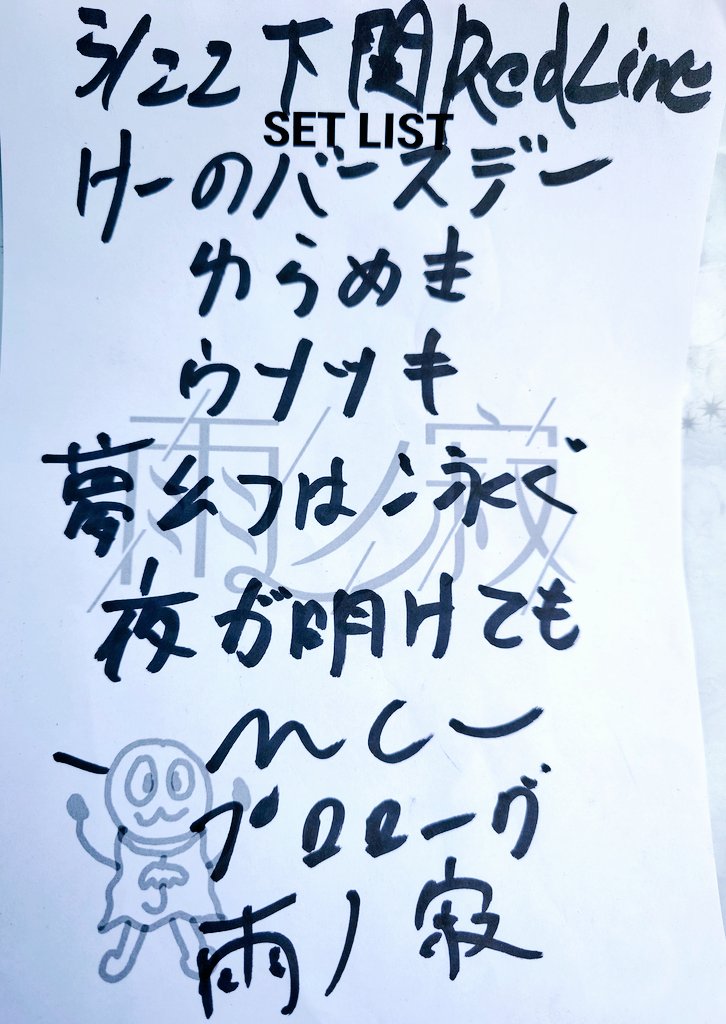 3/22 下関RedLine
SET LIST
けーのバースデー
ゆらめき
ウソツキ
雨ノ寂
夢幻は泳ぐ
夜が明けても
ー MC ー
プロローグ
雨ノ寂